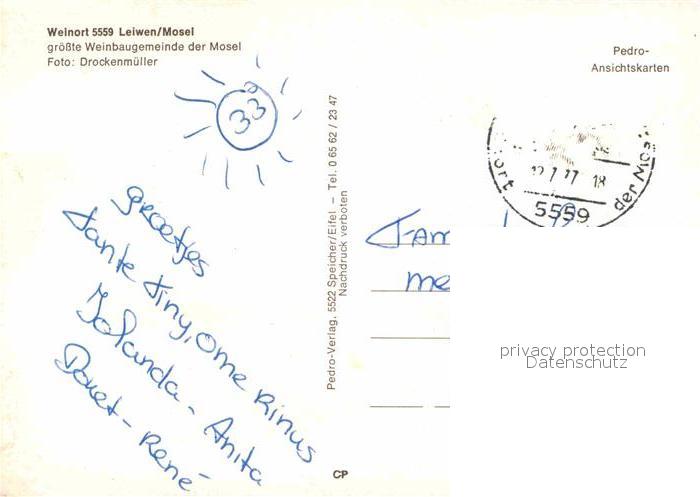 Weinort 5559 Leiwen/Mosel
größte Weinbaugemeinde der Mosel
Foto: Drockenmüller
Pedro-
Ansichtskarten
33°
Groetjes
Tante Tiny, Ome Rinus
Jolanda - Anita
René
Pedro-Verlag, 5522 Speicher/Eifel – Tel. 0 65 62 / 23 47
Nachdruck verboten
CP
7 77 18
der Mos
5559
Fam
me
privacy protection
Datenschutz